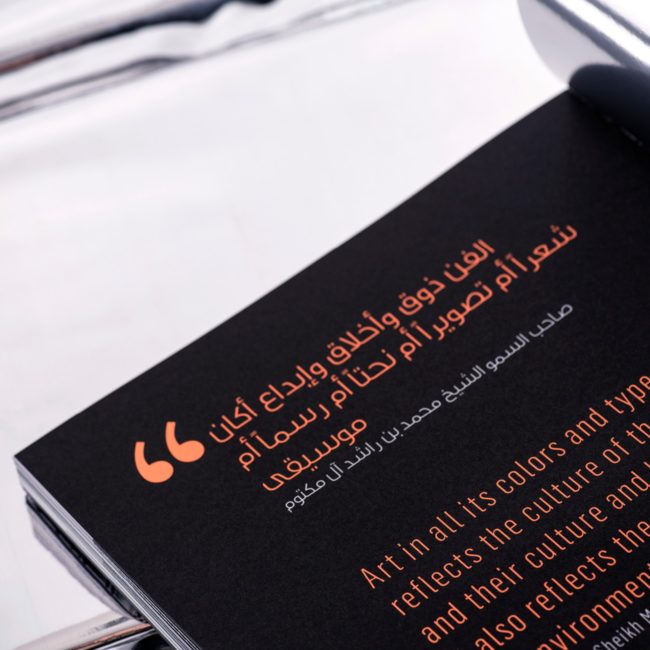 “
الفن ذوق وأخلاق وإبداع أكان
شعر آ أم تصوير آ أم نحتآ أم رسمآ أم
موسيقى
صاحب السمو الشيخ محمد بن راشد آل مكتوم
Art in all its colors and type
reflects the culture of th
and their culture and
also reflects the
nvironment
Sheikh M